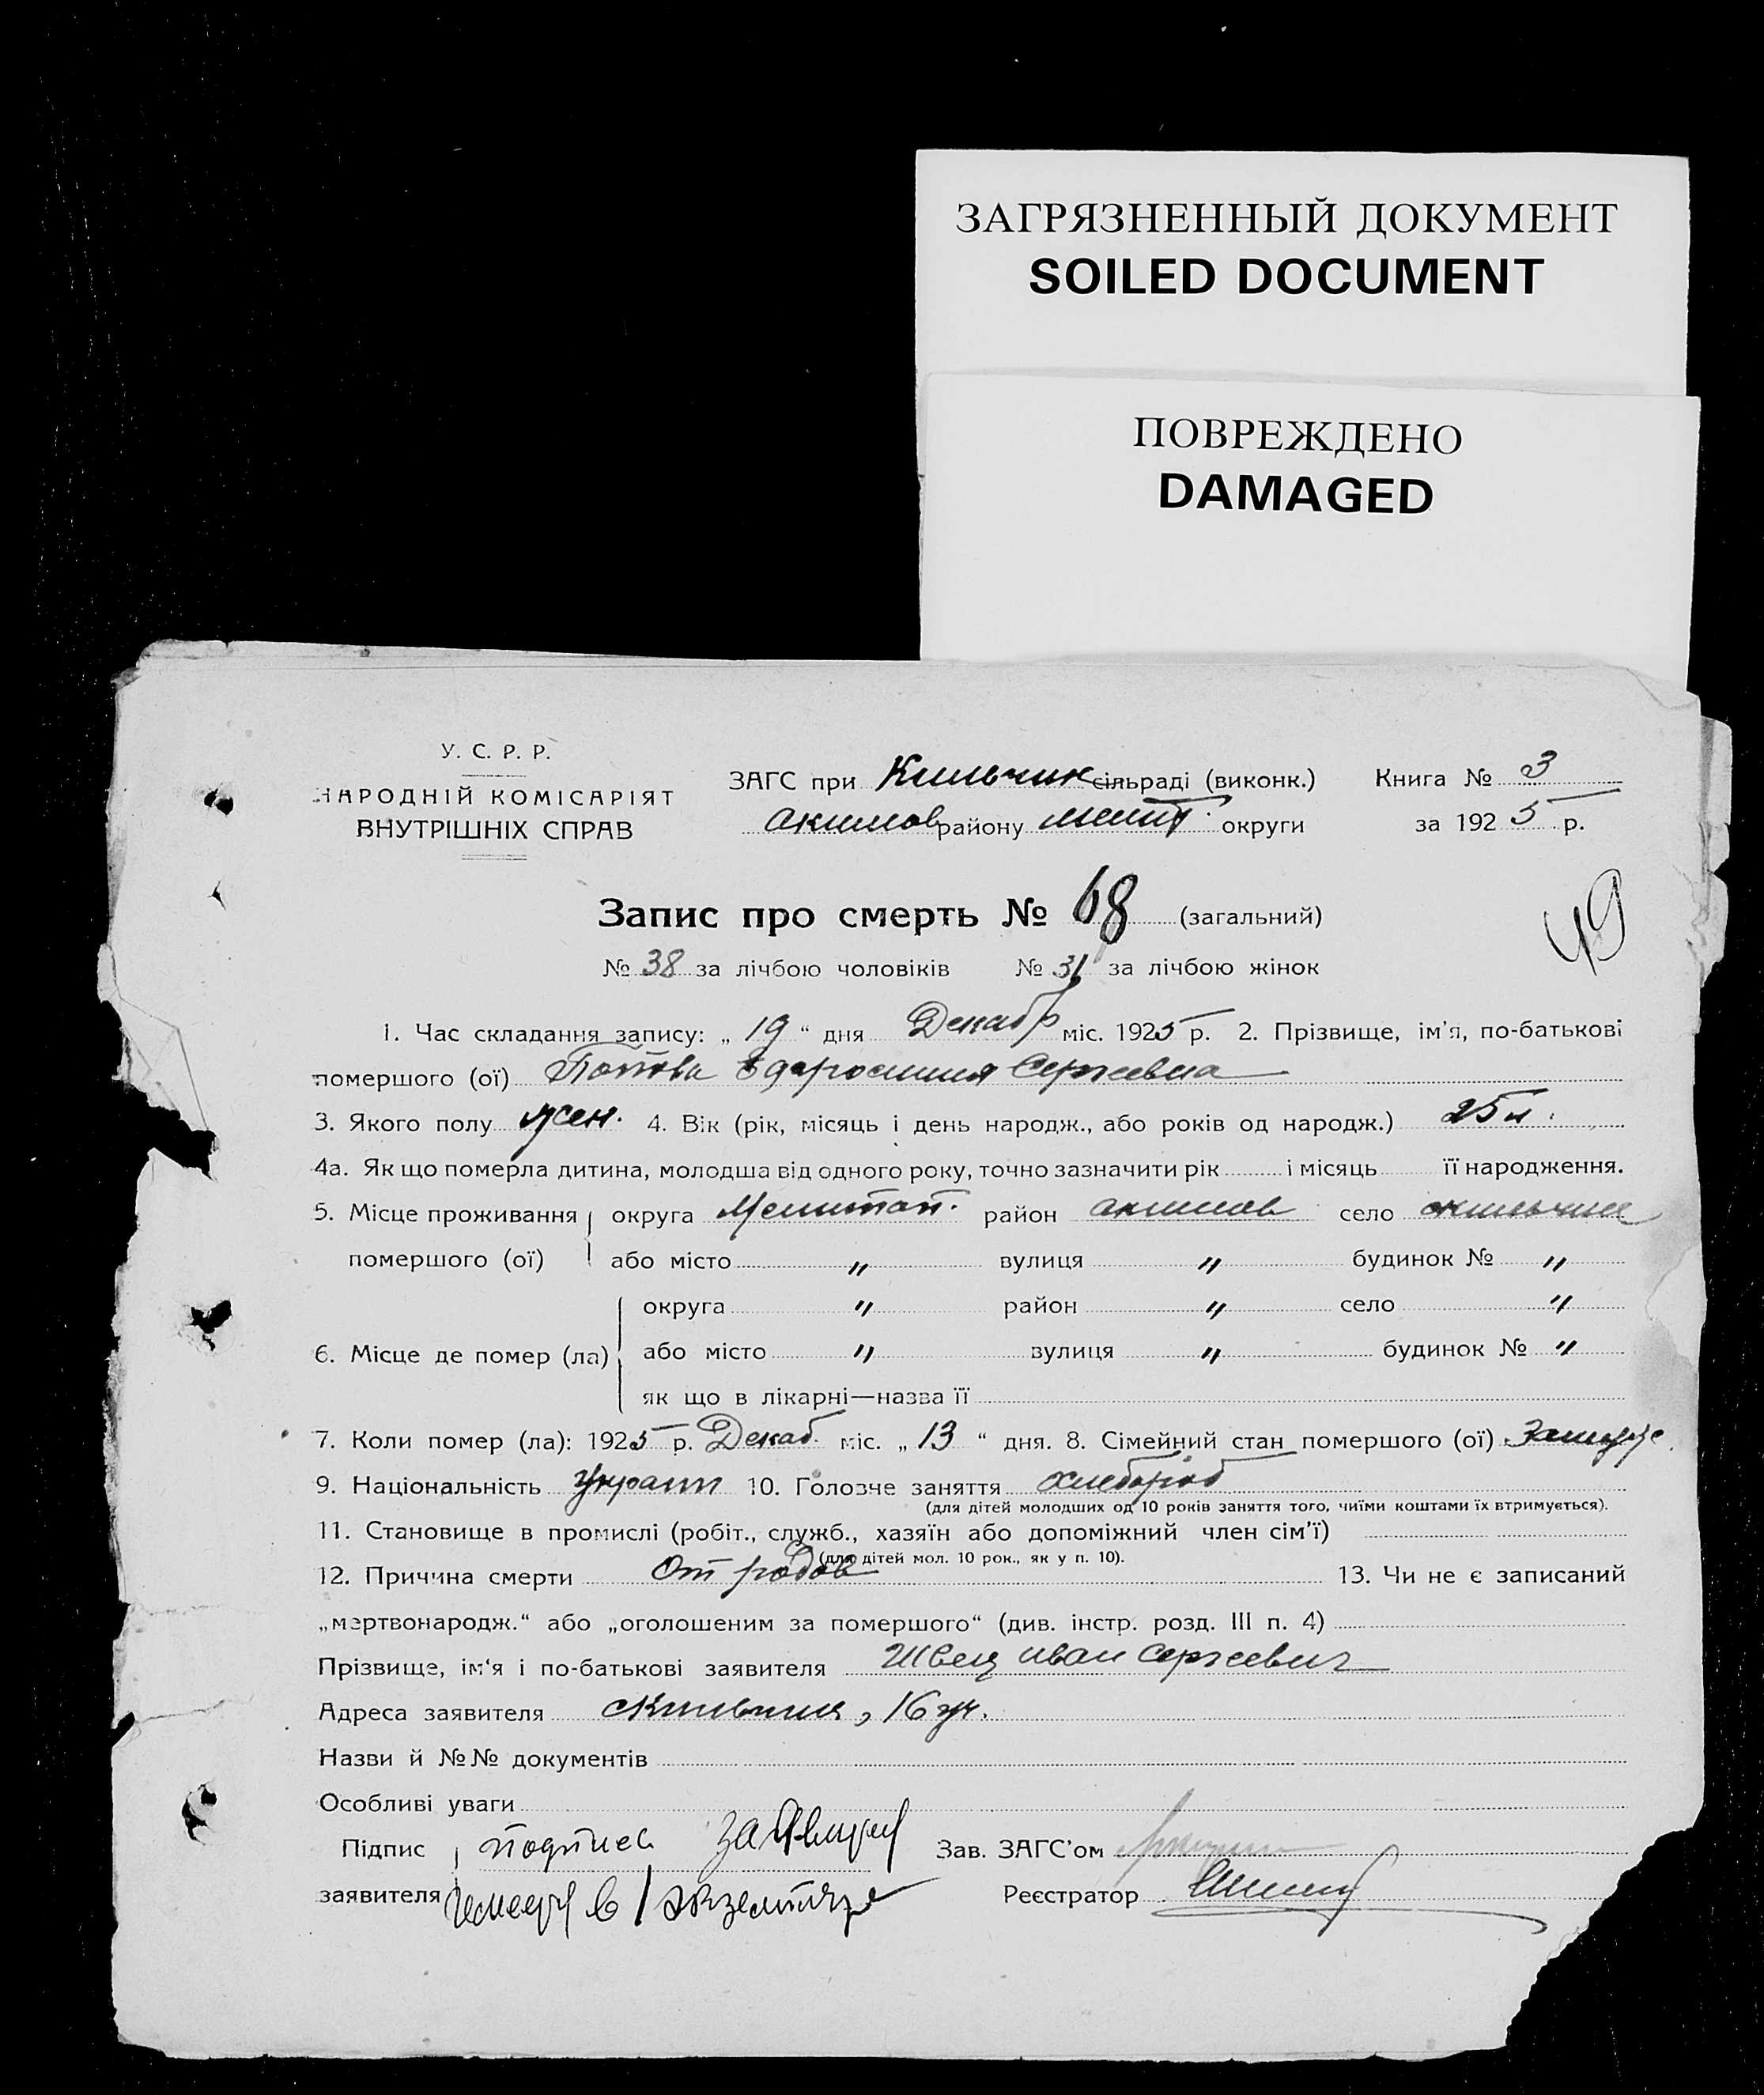 ЗАГРЯЗНЕННЫЙ ДОКУМЕНТ
SOILED DOCUMENT
ПОВРЕЖДЕНО
DAMAGED
У. С. Р. Р.
НАРОДНІЙ КОМІСАРІЯТ
ВНУТРІШНІХ СПРАВ
ЗАГС при сільраді (виконк.) Книга № 3
акимов району мелит. округи за 1925 р.
Запис про смерть № 68 (загальний)
№ 38 за лічбою чоловіків № 31 за лічбою жінок
49
1. Час складання запису: „ 19 “ дня Декабр міс. 1925 р. 2. Прізвище, ім'я, по-батькові
помершого (ої) Попова Сергеевна
3. Якого полу жен. 4. Вік (рік, місяць і день народж., або років од народж.) 25 л.
4а. Як що померла дитина, молодша від одного року, точно зазначити рік і місяць її народження.
5. Місце проживання округа Мелитоп. район акимов село
помершого (ої) або місто " вулиця " будинок № "
округа " район " село "
6. Місце де помер (ла) або місто " вулиця " будинок № "
як що в лікарні—назва її
7. Коли помер (ла): 1925 р. Декаб. міс. „ 13 “ дня. 8. Сімейний стан помершого (ої) Замуже
9. Національність Украин 10. Головне заняття хлебороб
(для дітей молодших од 10 років заняття того, чиїми коштами їх втримується).
11. Становище в промислі (робіт., служб., хазяїн або допоміжний член сім'ї)
(для дітей мол. 10 рок., як у п. 10).
12. Причина смерти От родов 13. Чи не є записаний
„мертвонародж.“ або „оголошеним за помершого“ (див. інстр. розд. III п. 4)
Прізвище, ім'я і по-батькові заявителя Швец Иван Сергеевич
Адреса заявителя , 16 уч.
Назви й №№ документів
Особливі уваги
Підпис подпись заявителя Зав. ЗАГС'ом
заявителя имеется в 1 экземпляре Реєстратор